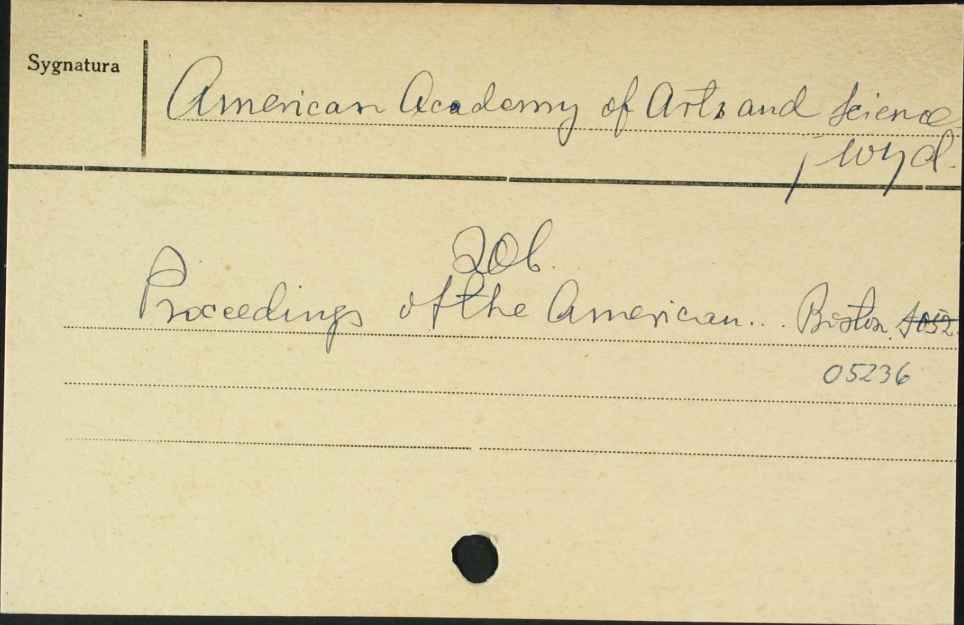 Sygnatura
American Academy of Arts and Science
, wyd.
Zob.
Proceedings of the American... Boston. 1052
05236